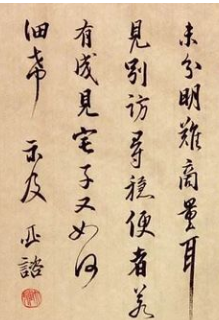 未分明難商量耳
見別訪尋穩便者若
有成見宅子又如何
細希 示及 正諮